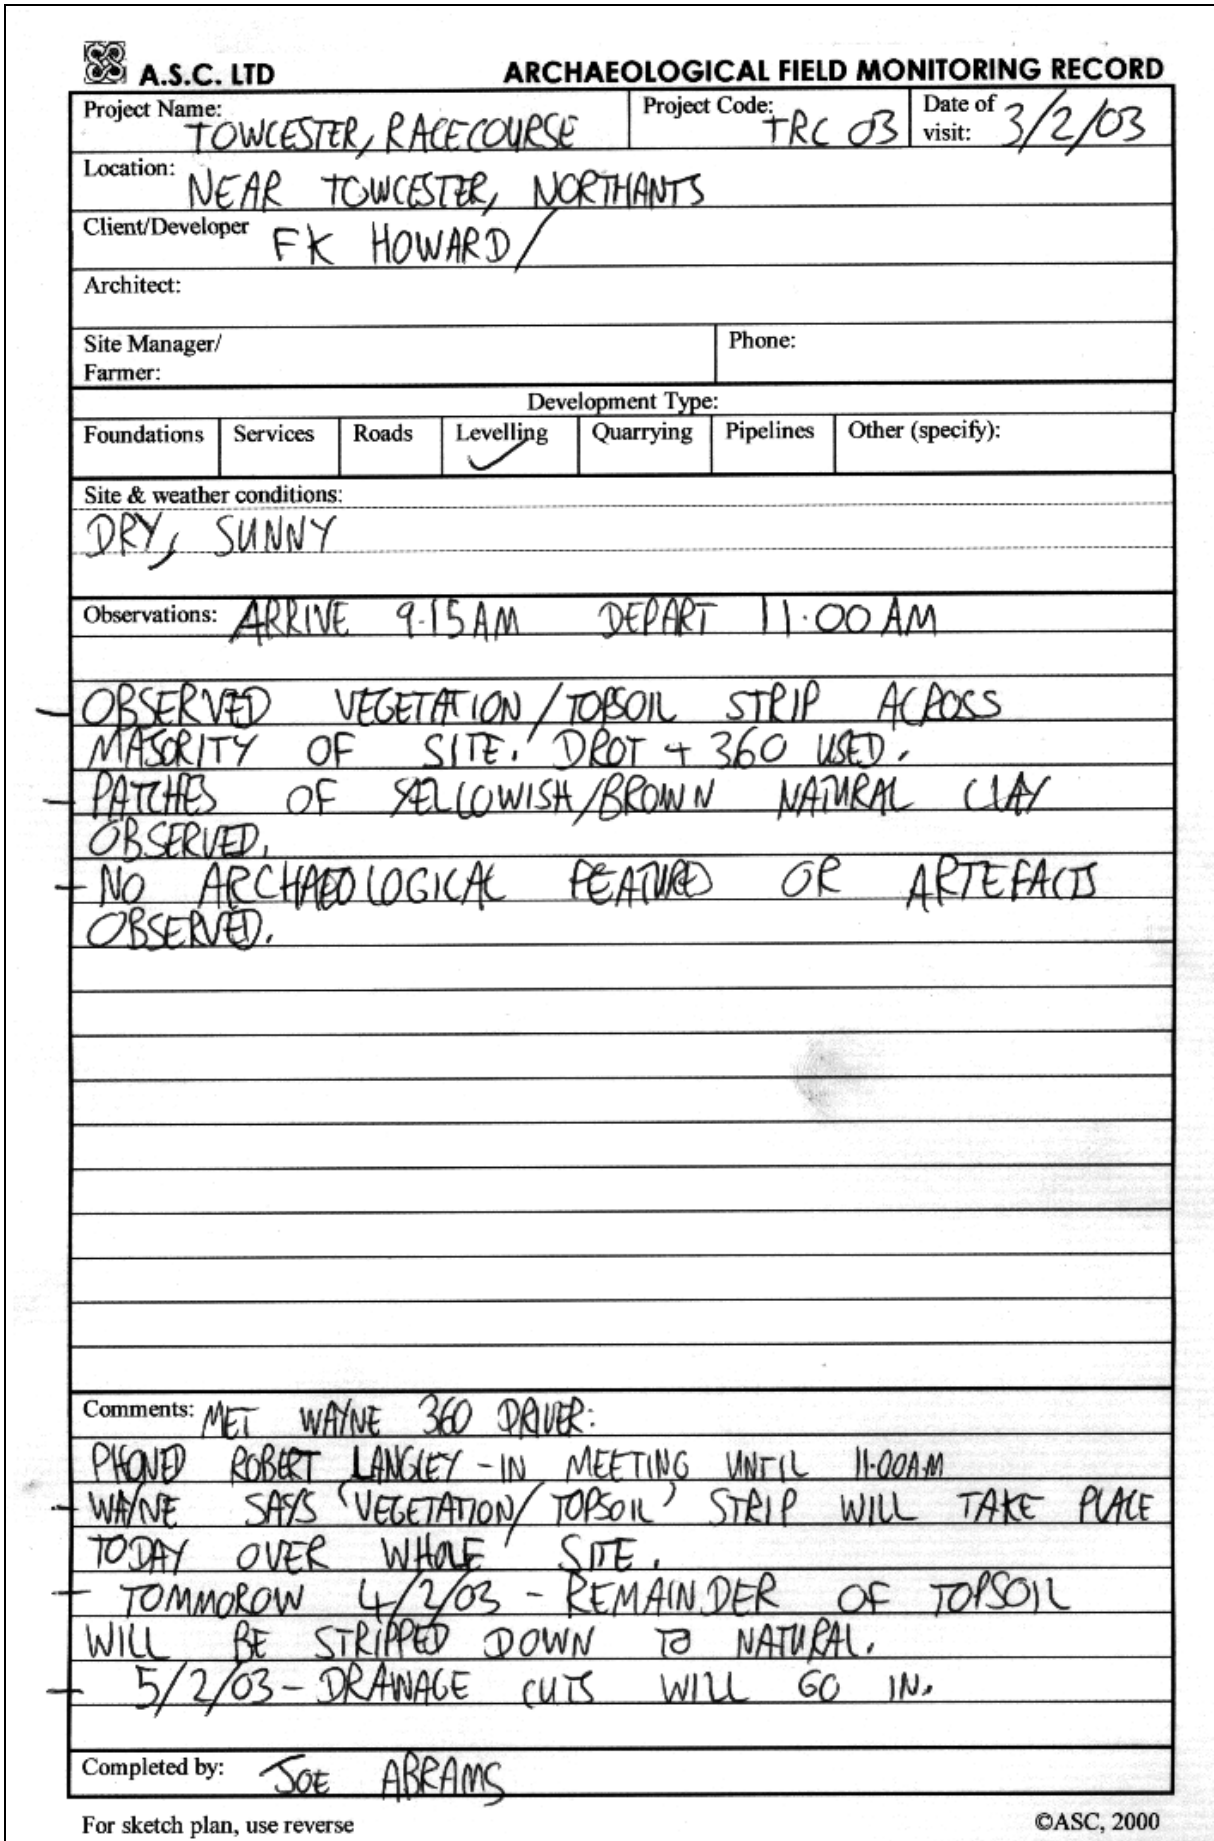 A.S.C. LTD ARCHAEOLOGICAL FIELD MONITORING RECORD
Project Name: TOWCESTER, RACECOURSE Project Code: TRC 03 Date of visit: 3/2/03
Location: NEAR TOWCESTER, NORTHANTS
Client/Developer FK HOWARD/
Architect:
Site Manager/ Farmer: Phone:
Development Type:
Foundations Services Roads Levelling ✓ Quarrying Pipelines Other (specify):
Site & weather conditions:
DRY, SUNNY
Observations: ARRIVE 9.15AM DEPART 11.00AM
- OBSERVED VEGETATION/TOPSOIL STRIP ACROSS
MAJORITY OF SITE. DROT + 360 USED.
- PATCHES OF YELLOWISH/BROWN NATURAL CLAY
OBSERVED.
- NO ARCHAEOLOGICAL FEATURES OR ARTEFACTS
OBSERVED.
Comments: MET WAYNE 360 DRIVER:
PHONED ROBERT LANGLEY - IN MEETING UNTIL 11.00AM
- WAYNE SAYS 'VEGETATION/TOPSOIL' STRIP WILL TAKE PLACE
TODAY OVER WHOLE SITE.
- TOMMOROW 4/2/03 - REMAINDER OF TOPSOIL
WILL BE STRIPPED DOWN TO NATURAL.
- 5/2/03 - DRAINAGE CUTS WILL GO IN.
Completed by: JOE ABRAMS
For sketch plan, use reverse ©ASC, 2000